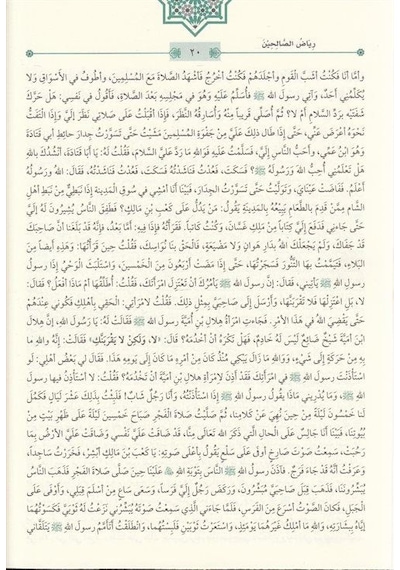 رِيَاضُ الصَّالِحِيْنَ
٢٠
وأمَّا أنَا فَكُنْتُ أشَبَّ الْقَومِ وأجْلَدَهُمْ فَكُنْتُ أخْرُجُ فَأشْهَدُ الصَّلاةَ مَعَ المُسْلِمِينَ، وأطُوفُ في الأَسْوَاقِ وَلا
يُكَلِّمُنِي أَحَدٌ، وآتِي رسولَ الله ﷺ فأُسَلِّمُ عَلَيْهِ وَهُوَ في مَجْلِسِهِ بَعْدَ الصَّلاةِ، فَأَقُولُ في نَفسِي: هَلْ حَرَّكَ
شَفَتَيْهِ بِرَدِّ السَّلامِ أَمْ لاَ؟ ثُمَّ أُصَلِّي قَريباً مِنْهُ وَأُسَارِقُهُ النَّظَرَ، فَإِذَا أقْبَلْتُ عَلَى صَلاتِي نَظَرَ إلَيَّ وَإِذَا الْتَفَتُّ
نَحْوَهُ أعْرَضَ عَنِّي، حَتَّى إِذَا طَال ذلِكَ عَلَيَّ مِنْ جَفْوَةِ المُسْلِمينَ مَشَيْتُ حَتَّى تَسَوَّرْتُ جِدارَ حائِطِ أبي قَتَادَةَ
وَهُوَ ابْنُ عَمِّي، وأَحَبُّ النَّاسِ إِلَيَّ، فَسَلَّمْتُ عَلَيهِ فَوَاللهِ مَا رَدَّ عَلَيَّ السَّلامَ، فَقُلْتُ لَهُ: يَا أَبَا قَتَادَةَ، أنْشُدُكَ بِاللهِ
هَلْ تَعْلَمُنِي أُحِبُّ اللهَ وَرَسُولَهُ ﷺ؟ فَسَكَتَ، فَعُدْتُ فَنَاشَدْتُهُ فَسَكَتَ، فَعُدْتُ فَنَاشَدْتُهُ، فَقَالَ: اللهُ ورَسُولُهُ
أَعْلَمُ. فَفَاضَتْ عَيْنَايَ، وَتَوَلَّيْتُ حَتَّى تَسَوَّرْتُ الجِدَارَ، فَبَيْنَا أَنَا أَمْشِي في سُوقِ الْمَدِينةِ إِذَا نَبَطِيٌّ مِنْ نَبَطِ أهْلِ
الشَّام مِمَّنْ قَدِمَ بالطَّعَامِ يَبِيعُهُ بِالمَدِينَةِ يَقُولُ: مَنْ يَدُلُّ عَلَى كَعْبِ بْنِ مَالِكٍ؟ فَطَفِقَ النَّاسُ يُشِيرُونَ لَهُ إلَيَّ
حَتَّى جَاءَنِي فَدَفَعَ إِلَيَّ كِتَاباً مِنْ مَلِكِ غَسَّانَ، وَكُنْتُ كَاتِباً. فَقَرَأْتُهُ فإِذَا فِيهِ: أَمَّا بَعْدُ، فإِنَّهُ قَدْ بَلَغَنا أنَّ صَاحِبَكَ
قَدْ جَفَاكَ، وَلَمْ يَجْعَلْكَ اللهُ بدَارِ هَوانٍ وَلاَ مَضْيَعَةٍ، فَالْحَقْ بنَا نُوَاسِكَ، فَقُلْتُ حِينَ قَرَأْتُهَا: وَهَذِهِ أَيضاً مِنَ
البَلاءِ، فَتَيَمَّمْتُ بهَا التَّنُّورَ فَسَجَرْتُهَا، حَتَّى إِذَا مَضَتْ أَرْبَعُونَ مِنَ الْخَمْسينَ، وَاسْتَلْبَثَ الْوَحْيُ إِذَا رسولُ
رسولِ الله ﷺ يَأْتِينِي، فَقالَ: إِنَّ رسولَ الله ﷺ يَأمُرُكَ أَنْ تَعْتَزِلَ امْرَأتَكَ، فَقُلْتُ: أُطَلِّقُهَا أَمْ مَاذَا أفْعَلُ؟ فَقالَ:
لاَ، بَلِ اعْتَزِلْهَا فَلاَ تَقْرَبَنَّهَا، وَأَرْسَلَ إِلَى صَاحِبَيَّ بِمِثْلِ ذلِكَ. فَقُلْتُ لامْرَأَتِي: الْحَقِي بِأهْلِكِ فَكُوني عِنْدَهُمْ
حَتَّى يَقْضِيَ اللهُ في هَذَا الأمْرِ. فَجَاءَتِ امْرَأةُ هِلاَلِ بْنِ أُمَيَّةَ رسولَ الله ﷺ فَقَالَتْ لَهُ: يَا رَسُولَ الله، إنَّ هِلاَلَ
ابْنَ أمَيَّةَ شَيْخٌ ضَائِعٌ لَيْسَ لَهُ خَادِمٌ، فَهَلْ تَكْرَهُ أنْ أخْدُمَهُ؟ قَالَ: «لاَ، وَلَكِنْ لاَ يَقْرَبَنَّكِ» فَقَالَتْ: إِنَّهُ واللهِ ما
بِهِ مِنْ حَرَكَةٍ إِلَى شَيْءٍ، وَوَاللهِ مَا زَالَ يَبْكِي مُنْذُ كَانَ مِنْ أَمْرِهِ مَا كَانَ إِلَى يَومِهِ هَذَا. فَقَالَ لي بَعْضُ أهْلِي: لَو
اسْتَأْذَنْتَ رسولَ الله ﷺ في امْرَأَتِكَ فَقَدْ أَذِن لاِمْرَأةِ هلاَلِ بْنِ أمَيَّةَ أنْ تَخْدُمَهُ؟ فَقُلْتُ: لاَ أسْتَأذِنُ فيها رسولَ
الله ﷺ، وَمَا يُدْرِيني مَاذَا يقُولُ رسولُ الله ﷺ إِذَا اسْتَأْذَنْتُهُ، وَأَنَا رَجُلٌ شَابٌّ! فَلَبِثْتُ بِذَلِكَ عَشْرَ لَيَالٍ فَكَمُلَ
لَنا خَمْسُونَ لَيْلَةً مِنْ حِينَ نُهِيَ عَنْ كَلاَمِنا، ثُمَّ صَلَّيْتُ صَلاَةَ الْفَجْرِ صَبَاحَ خَمْسِينَ لَيْلَةً عَلَى ظَهْرِ بَيْتٍ مِنْ
بُيُوتِنَا، فَبَيْنَا أَنَا جَالِسٌ عَلَى الْحالِ الَّتي ذَكَرَ الله تَعَالَى مِنَّا، قَدْ ضَاقَتْ عَلَيَّ نَفْسي وَضَاقَتْ عَلَيَّ الأرْضُ بِمَا
رَحُبَتْ، سَمِعْتُ صَوْتَ صَارِخٍ أوفَى عَلَى سَلْعٍ يَقُولُ بِأعْلَى صَوتِهِ: يَا كَعْبَ بْنَ مَالِكٍ أبْشِرْ، فَخَرَرْتُ سَاجِداً،
وَعَرَفْتُ أنَّهُ قَدْ جَاءَ فَرَجٌ. فآذَنَ رسولُ الله ﷺ النَّاسَ بِتَوْبَةِ الله عَلَيْنَا حِينَ صَلَّى صَلاةَ الفَجْرِ، فَذَهَبَ النَّاسُ
يُبَشِّرُونَنَا، فَذَهَبَ قِبَلَ صَاحِبَيَّ مُبَشِّرونَ، وَرَكَضَ رَجُلٌ إِلَيَّ فَرَساً، وَسَعَى سَاعٍ مِنْ أسْلَمَ قِبَلِي، وَأَوْفَى عَلَى
الْجَبَلِ، فَكانَ الصَّوْتُ أسْرَعَ مِنَ الفَرَسِ، فَلَمَّا جَاءَنِي الَّذِي سَمِعْتُ صَوْتَهُ يُبَشِّرُنِي نَزَعْتُ لَهُ ثَوْبَيَّ فَكَسَوْتُهُمَا
إيَّاهُ بِبِشَارَتِهِ، وَاللهِ مَا أمْلِكُ غَيْرَهُمَا يَوْمَئِذٍ، وَاسْتَعَرْتُ ثَوْبَيْنِ فَلَبِسْتُهُما، وَانْطَلَقْتُ أتَأمَّمُ رسولَ الله ﷺ يَتَلَقَّاني